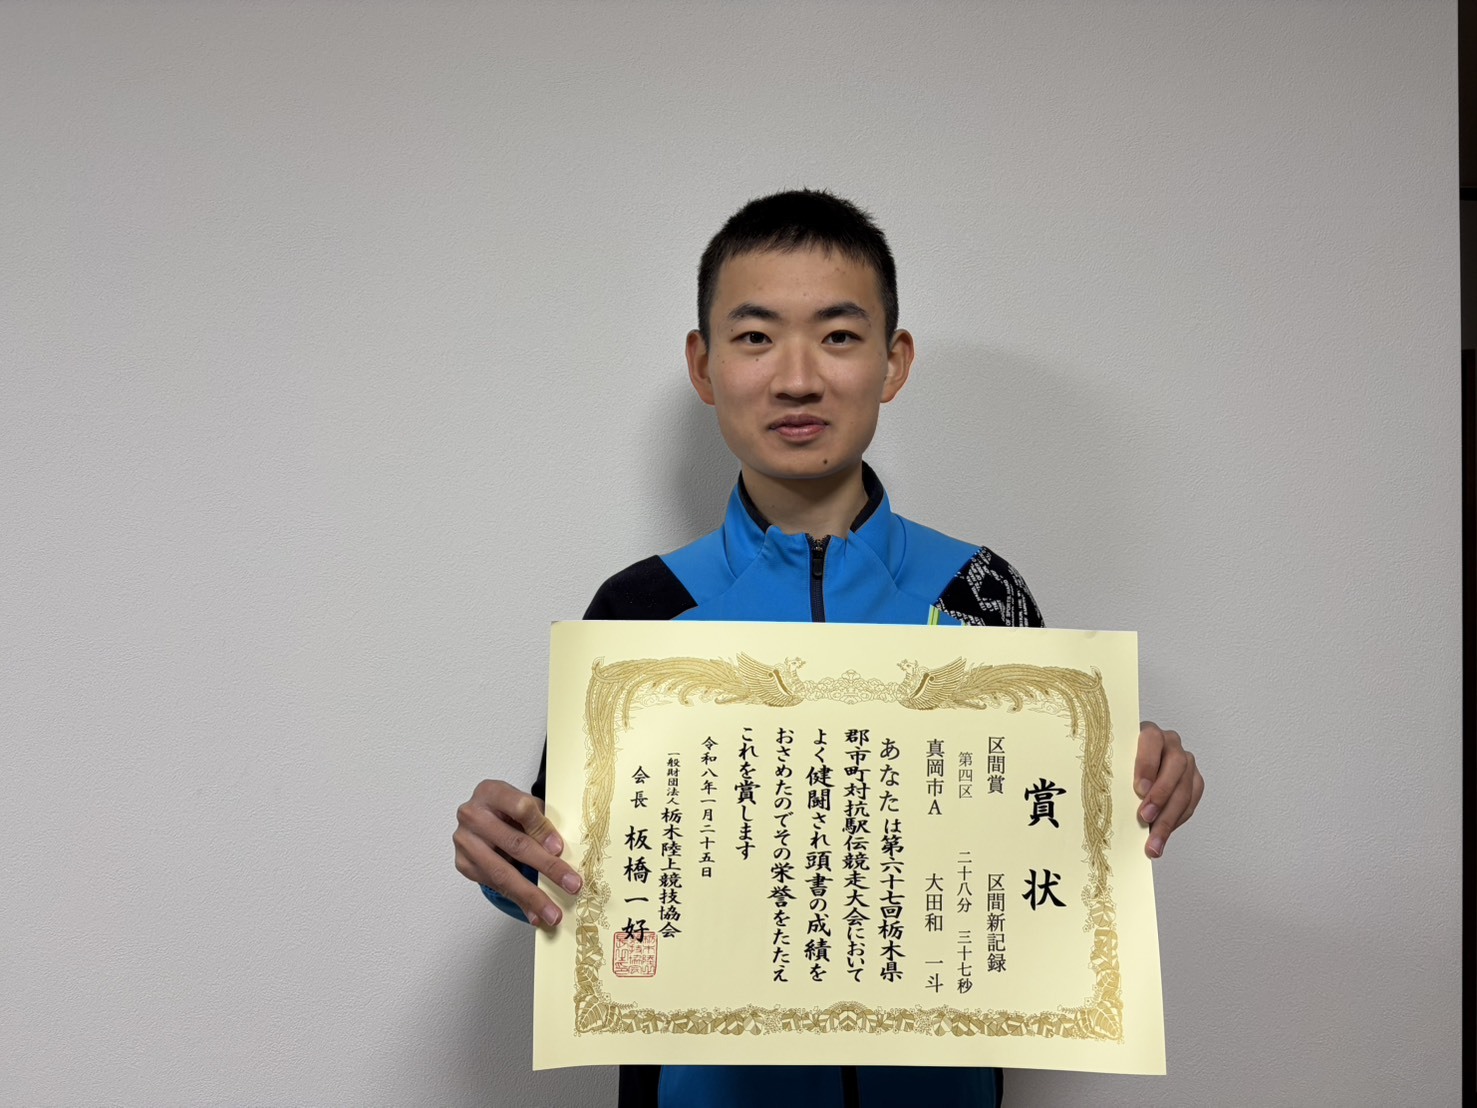 賞状
区間賞 区間新記録
第四区 二十八分 三十七秒
真岡市A 大田和 一斗
あなたは第六十七回栃木県
郡市町対抗駅伝競走大会において
よく健闘され頭書の成績を
おさめたのでその栄誉をたたえ
これを賞します
令和八年一月二十五日
一般財団法人 栃木陸上競技協会
会長 板橋一好